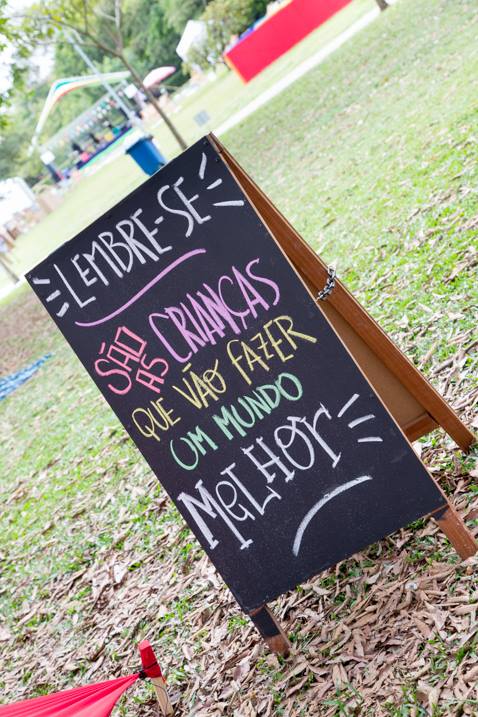 LEMBRE-SE
SÃO AS CRIANÇAS
QUE VÃO FAZER
UM MUNDO
MELHOR